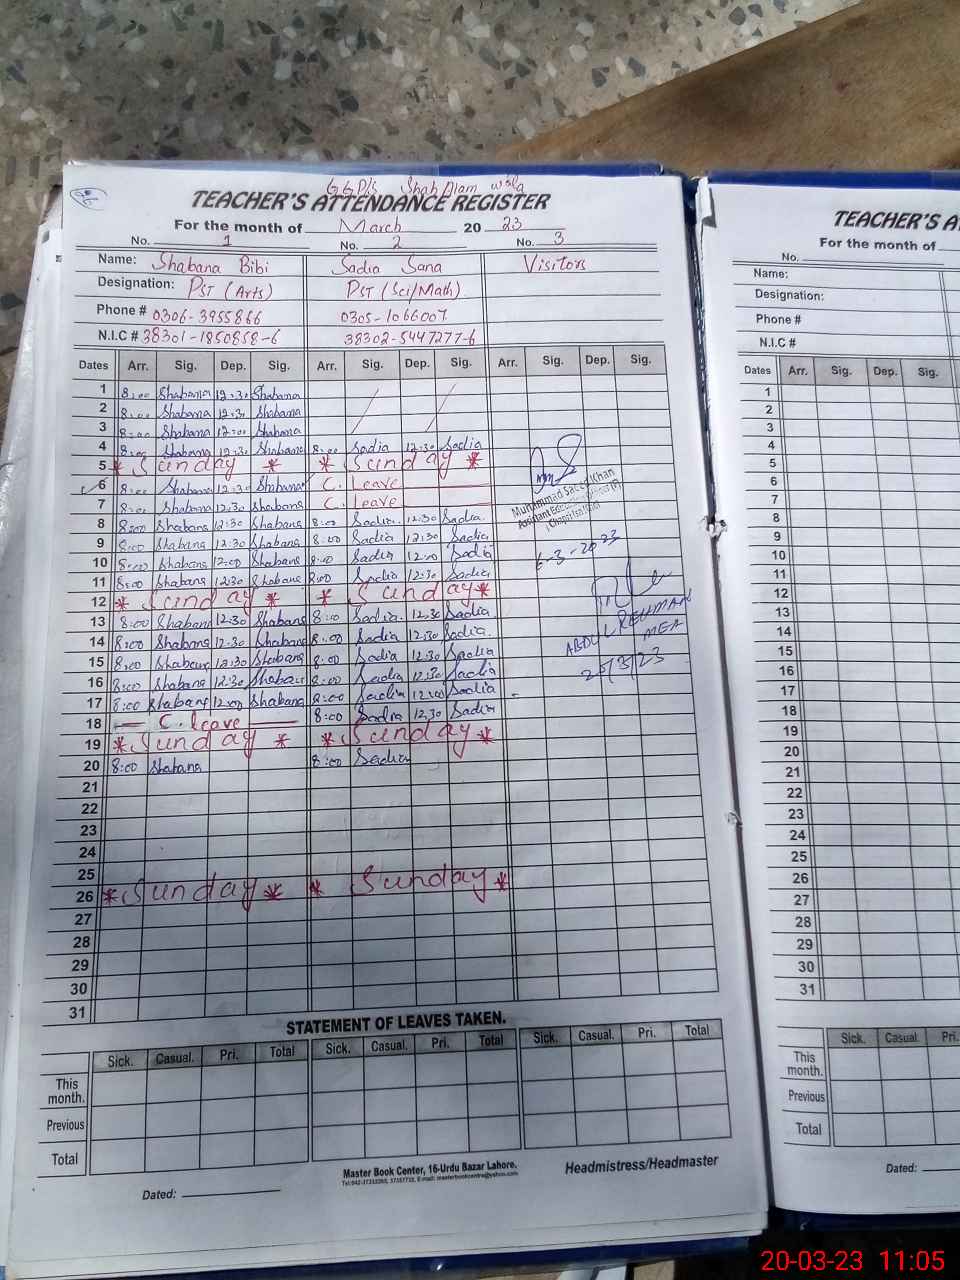 GGP/S Shah Alam wala
TEACHER'S ATTENDANCE REGISTER
For the month of March 20 23
No. 1 No. 2 No. 3
Name: Shabana Bibi Sadia Sana Visitors
Designation: PST (Arts) PST (Sci/Math)
Phone # 0306-3955866 0305-1066007
N.I.C # 38301-1850858-6 38302-5447277-6
Dates Arr. Sig. Dep. Sig. Arr. Sig. Dep. Sig. Arr. Sig. Dep. Sig.
1 8:00 Shabana 12:30 Shabana
2 8:00 Shabana 12:30 Shabana
3 8:00 Shabana 12:00 Shabana
4 8:00 Shabana 12:30 Shabana 8:00 Sadia 12:30 Sadia
5 * Sunday * * Sunday *
6 8:00 Shabana 12:30 Shabana C. Leave
7 8:00 Shabana 12:30 Shabana C. Leave
Muhammad Saeed Khan
8 8:00 Shabana 12:30 Shabana 8:00 Sadia 12:30 Sadia
9 8:00 Shabana 12:30 Shabana 8:00 Sadia 12:30 Sadia
10 8:00 Shabana 12:00 Shabana 8:00 Sadia 12:00 Sadia 6-3-2023
11 8:00 Shabana 12:30 Shabana 8:00 Sadia 12:30 Sadia
12 * Sunday * * Sunday *
13 8:00 Shabana 12:30 Shabana 8:00 Sadia 12:30 Sadia
14 8:00 Shabana 12:30 Shabana 8:00 Sadia 12:30 Sadia ABDUL REHMAN
15 8:00 Shabana 12:30 Shabana 8:00 Sadia 12:30 Sadia MEA
16 8:00 Shabana 12:30 Shabana 8:00 Sadia 12:30 Sadia
17 8:00 Shabana 12:00 Shabana 8:00 Sadia 12:00 Sadia
18 C. leave 8:00 Sadia 12:30 Sadia
19 * Sunday * * Sunday *
20 8:00 Shabana 8:00 Sadia
21
22
23
24
25
26 * Sunday * * Sunday *
27
28
29
30
31
STATEMENT OF LEAVES TAKEN.
Sick. Casual. Pri. Total Sick. Casual. Pri. Total Sick. Casual. Pri. Total
This month.
Previous
Total
Master Book Center, 16-Urdu Bazar Lahore.
Headmistress/Headmaster
Dated:
TEACHER'S A
For the month of
No.
Name:
Designation:
Phone #
N.I.C #
Dates Arr. Sig. Dep. Sig.
1
2
3
4
5
6
7
8
9
10
11
12
13
14
15
16
17
18
19
20
21
22
23
24
25
26
27
28
29
30
31
Sick. Casual. Pri.
This month.
Previous
Total
Dated:
20-03-23 11:05